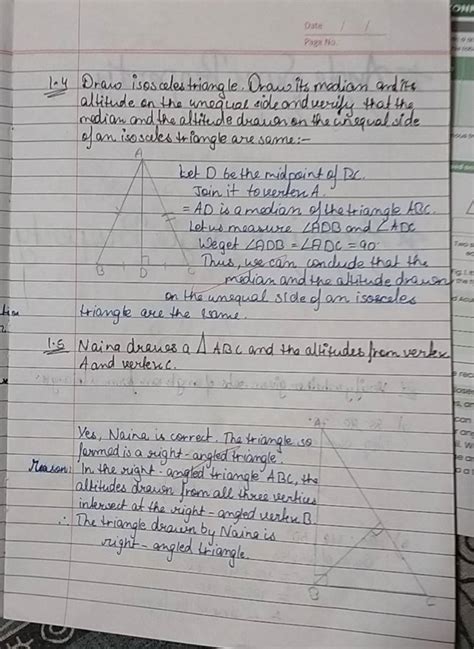 Date / /
Page No.
1.4 Draw isosceles triangle. Draw its median and its
altitude on the unequal side and verify that the
median and the altitude drawn on the unequal side
of an isosceles triangle are same:-
A
B
D
C
Let D be the midpoint of BC.
Join it to vertex A.
= AD is a median of the triangle ABC.
Let us measure ∠ADB and ∠ADC
We get ∠ADB = ∠ADC = 90°
Thus, we can conclude that the
median and the altitude drawn
on the unequal side of an isosceles
triangle are the same.
1.5 Naina draws a △ ABC and the altitudes from vertex
A and vertex C.
Yes, Naina is correct. The triangle so
formed is a right-angled triangle.
Reason: In the right-angled triangle ABC, the
altitudes drawn from all three vertices
intersect at the right-angled vertex B.
∴ The triangle drawn by Naina is
right-angled triangle.
A
B
C